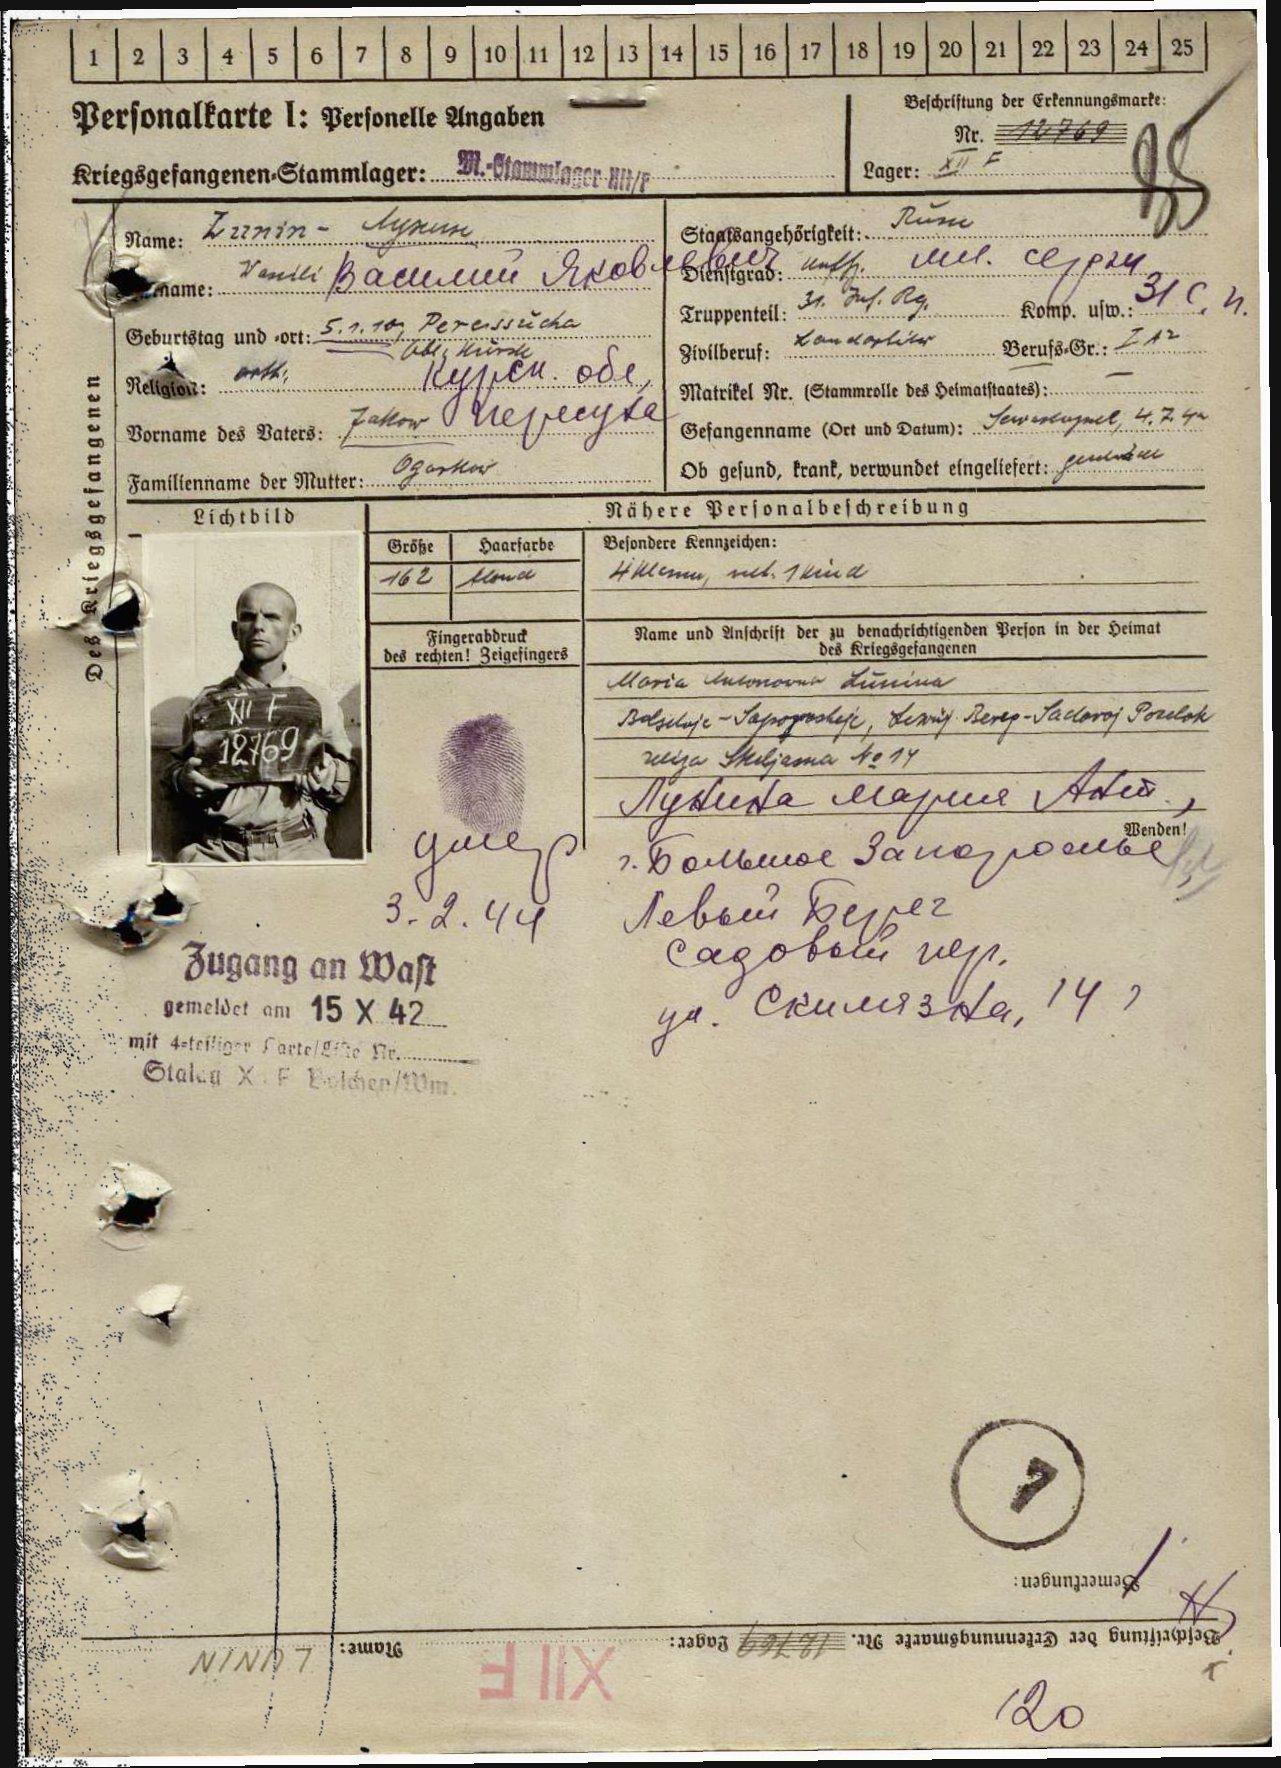 1 2 3 4 5 6 7 8 9 10 11 12 13 14 15 16 17 18 19 20 21 22 23 24 25
Personalkarte I: Personelle Angaben
Beschriftung der Erkennungsmarke:
Nr. 12769
Kriegsgefangenen-Stammlager: M.-Stammlager XII/F
Lager: XII F
Des Kriegsgefangenen
Name: Lunin - Лунин
Staatsangehörigkeit: Russe
Vorname: Vasili Василий Яковлевич
Dienstgrad: Uffz. мл. сержн
Truppenteil: 31. Inf. Rg. Komp. usw.: 31 с. п.
Geburtstag und -ort: 5.1.10, Peressucha
Obl. Kursk
Zivilberuf: Landarbiter Berufs-Gr.: I A2
Religion: orth. Курск. обл,
Matrikel Nr. (Stammrolle des Heimatstaates): —
Vorname des Vaters: Jakow Пересуха
Gefangennahme (Ort und Datum): Sewastopol, 4.7.42
Familienname der Mutter: Ogarkow
Ob gesund, krank, verwundet eingeliefert: gesund
Lichtbild
Nähere Personalbeschreibung
Größe Haarfarbe Besondere Kennzeichen:
162 blond 4 Klassen, verh. 1 Kind
Fingerabdruck
des rechten! Zeigefingers
Name und Anschrift der zu benachrichtigenden Person in der Heimat
des Kriegsgefangenen
XII F
12769
Maria Antonovna Lunina
Bolschoje-Saporoshje, Lewuj-Bereg-Sadovoj Poselok
uliza Skeljasna No 14
Лунина Мария Ант.,
Wenden!
умер
3.2.44
г. Большое Запорожье
Левый Берег
Садовый пер.
ул. Скилязна, 14
Zugang an Wast
gemeldet am 15 X 42
mit 4-teiliger Karte/Liste Nr.
Stalag XII F Bolchen/Wm.
7
Bemerkungen:
Beschriftung der Erkennungsmarke Nr. 12769 Lager: XII F Name: LUNIN
120